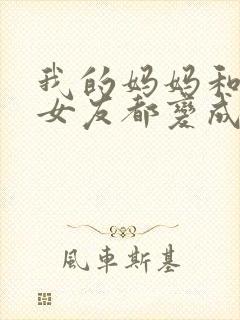 我的妈妈和
女友都變成
風車斯基